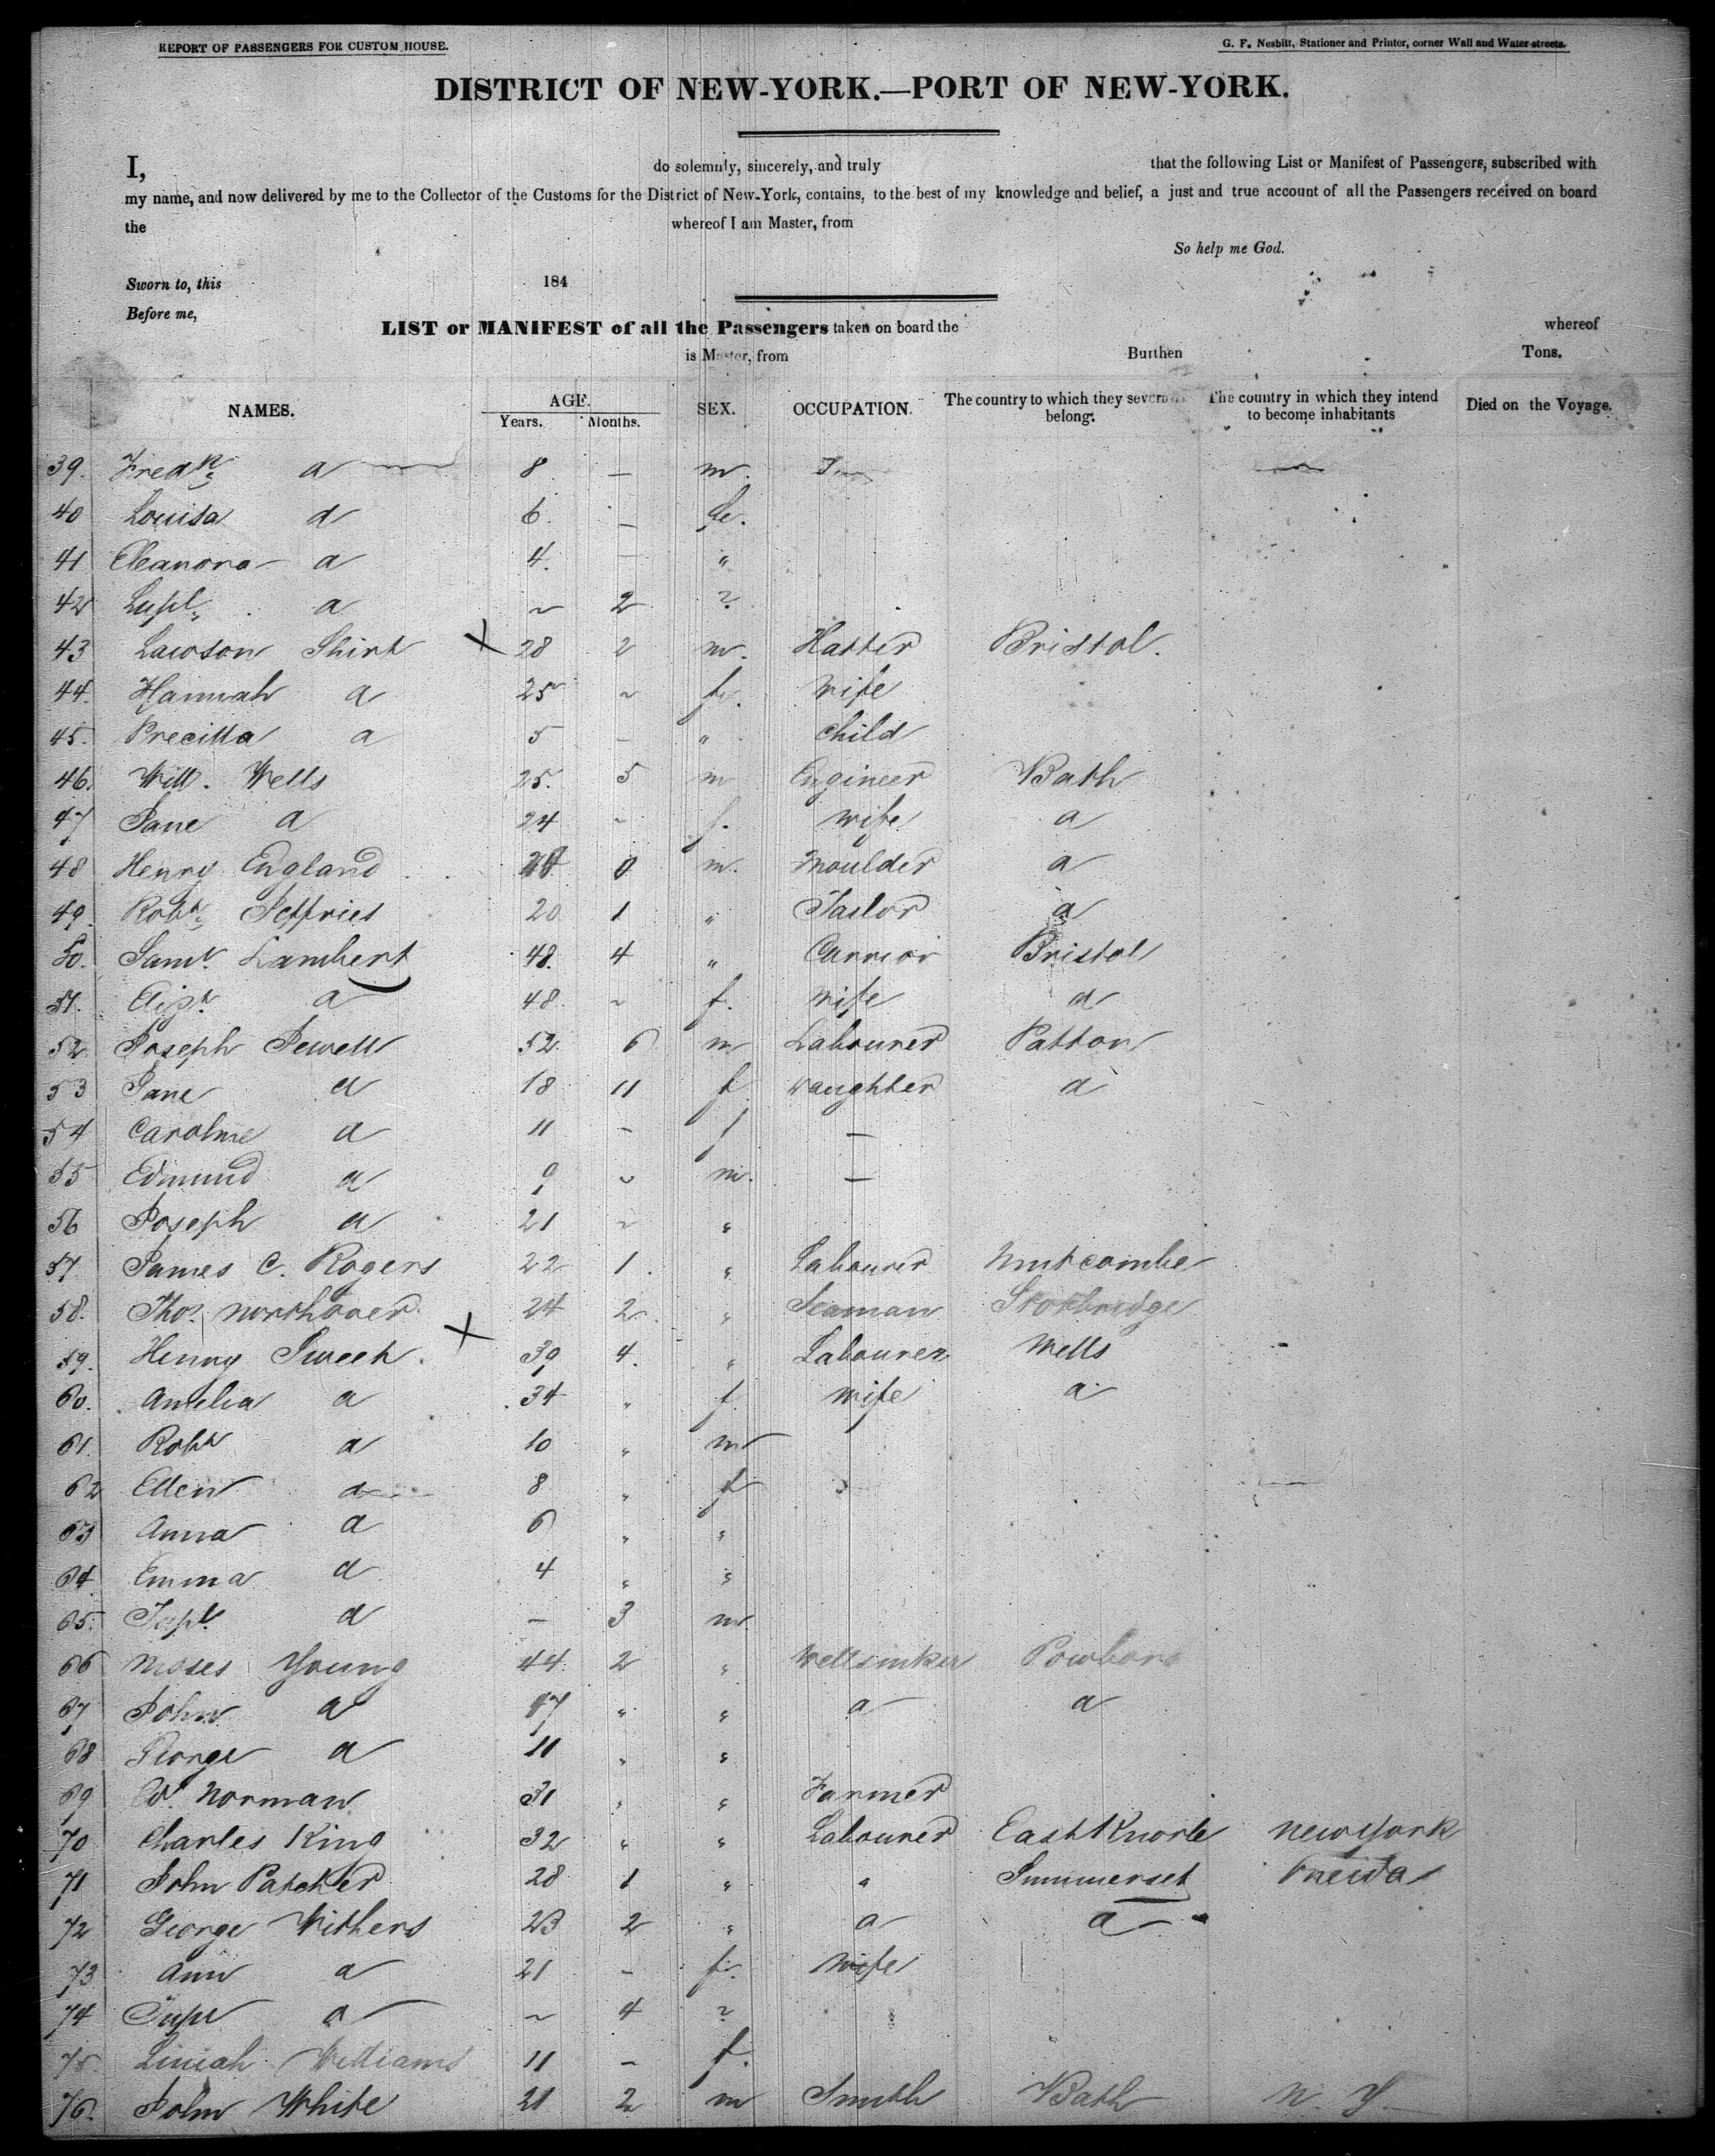 REPORT OF PASSENGERS FOR CUSTOM HOUSE. G. F. Nesbitt, Stationer and Printer, corner Wall and Water-streets.
DISTRICT OF NEW-YORK.—PORT OF NEW-YORK.
I, do solemnly, sincerely, and truly that the following List or Manifest of Passengers, subscribed with
my name, and now delivered by me to the Collector of the Customs for the District of New-York, contains, to the best of my knowledge and belief, a just and true account of all the Passengers received on board
the whereof I am Master, from
So help me God.
Sworn to, this 184
Before me,
LIST or MANIFEST of all the Passengers taken on board the whereof
is Master, from Burthen Tons.
NAMES. AGE. SEX. OCCUPATION. The country to which they severally belong. The country in which they intend to become inhabitants Died on the Voyage.
Years. Months.
39. Fredk a 8 — m.
40 Louisa a 6. — fe.
41 Eleanora a 4. — "
42 a ~ 2 ?
43 Lawson Shirt X 28 2 m. Hatter Bristol.
44. Hannah a 25 ~ fe. Wife
45. Precilla a 5 — " Child
46. Will. Wells 25. 5 m Engineer Bath
47 Jane a 24 ~ f. wife a
48 Henry England 0 m. Moulder a
49. Robt. Jeffries 20 1 " Tailor a
50. Saml. Lambert 48. 4 " Currior Bristol
51. Elizh. a 48. ~ f. Wife a
52. Joseph Jewell 52. 6 m Labourer Patton
53 Jane a 18 11 f daughter a
54 Caroline a 11 - f —
55 Edmund a 9 ~ m. —
56 Joseph a 21 ~ "
57. James C. Rogers 22 1. " Labourer Nutcombe
58. Thos. Northover 24 2. " Seaman Stokbridge
59. Henry Sweet. X 39 4. " Labourer Wells
60. Amelia a 34 " f. wife a
61. Robt a 10 " m
62 Ellen a 8 " f
63 Anna a 6 " "
64 Emma a 4 " "
65. a — 3 m
66 Moses Young 44 2 " Wellsinker
67 John a 17 " " a a
68 George a 11 " "
69 W. Norman 31 " " Farmer
70 Charles King 32 " " Labourer East Knorle New York
71 John Patcher 28 1 " " Summerset Oneida
72 George Withers 23 2 " a a
73 Ann a 21 - f. Wife
74 a ~ 4 ?
75 Williams 11 — f.
76. John White 21 2 m Smith Bath N. Y.